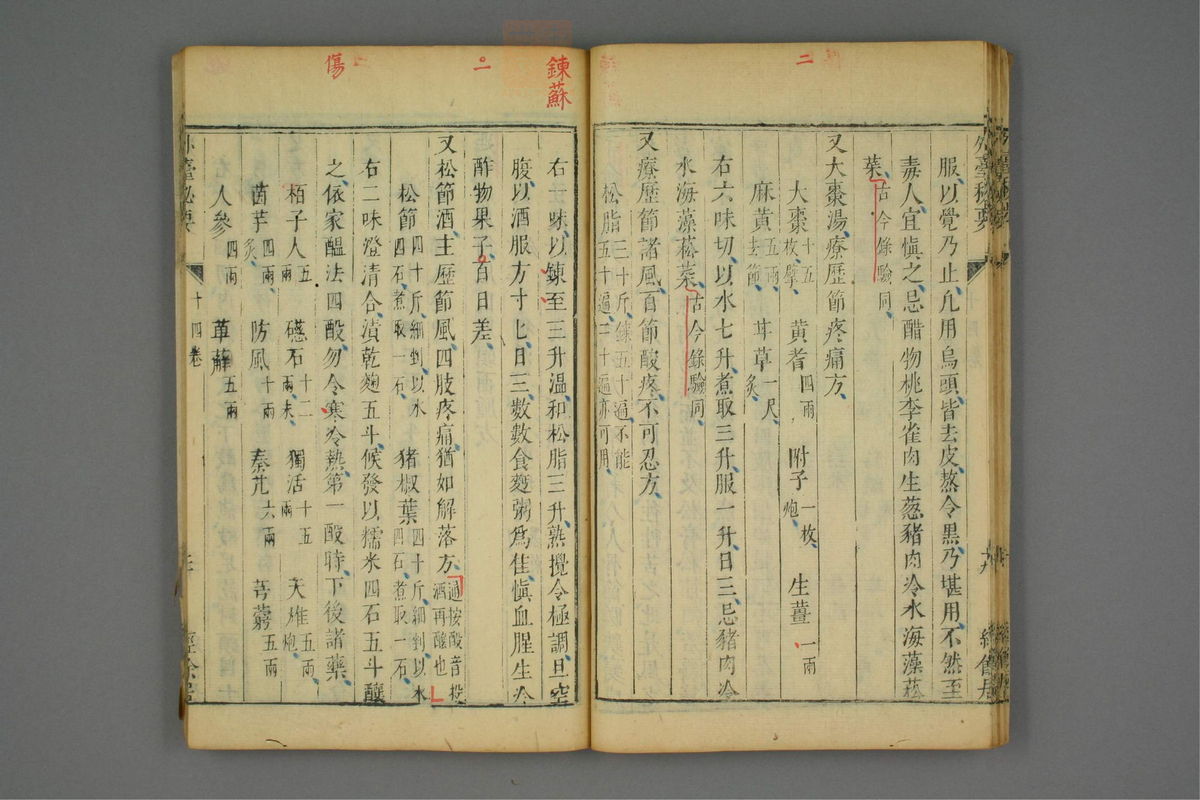 二
外臺秘要
服以覺乃止凡用烏頭皆去皮熬令黑乃堪用不然至
毒人宜慎之忌醋物桃李雀肉生葱豬肉冷水海藻菘
菜古今錄驗同
又大棗湯療歷節疼痛方
大棗十五枚擘 黃耆四兩 附子一枚炮 生薑一兩
麻黃五兩去節 甘草一尺炙
右六味切以水七升煮取三升服一升日三忌豬肉冷
水海藻菘菜古今錄驗同
又療歷節諸風百節酸疼不可忍方
松脂三十斤鍊五十遍不能五十遍二十遍亦可用
鍊蘇
一
傷
右一味以鍊至三升溫和松脂三升熟攪令極調旦空
腹以酒服方寸匕日三數數食麪粥爲佳慎血腥生冷
酢物果子百日差
又松節酒主歷節風四肢疼痛猶如解落方通按酘音投酒再釀也
松節四十斤細剉以水四石煮取一石 豬椒葉四十斤細剉以水四石煮取一石
右二味澄清合漬乾麴五斗候發以糯米四石五斗釀
之依家醞法四酘勿令寒冷熱第一酘時下後諸藥
柏子人五兩 磁石十二兩末 獨活十五兩 天雄五兩炮
茵芋四兩炙 防風十兩 秦艽六兩 芎藭五兩
人參四兩 萆薢五兩
外臺秘要 十四卷